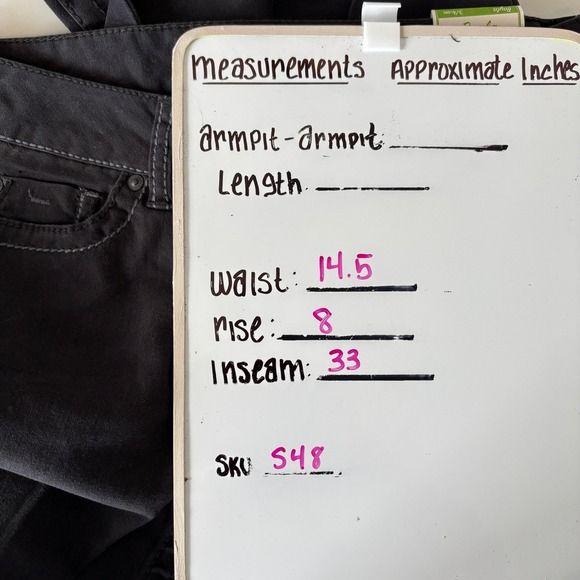 measurements Approximate Inches
armpit-armpit
Length
waist: 14.5
rise: 8
Inseam: 33
SKU S48